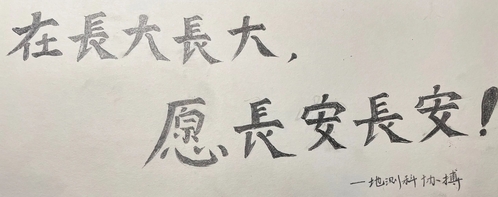 在長大長大，
愿長安長安！
—地测科协